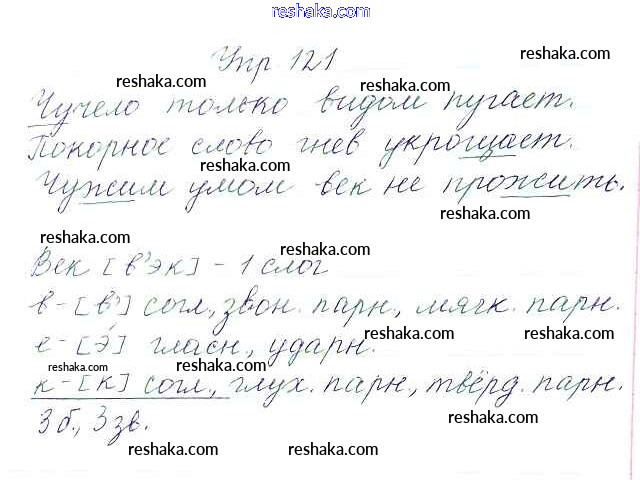 reshaka.com
Упр 121
reshaka.com
reshaka.com reshaka.com
Чучело только видом пугает.
reshaka.com
Покорное слово гнев укрощает.
reshaka.com reshaka.com
Чужим умом век не прожить.
reshaka.com
reshaka.com reshaka.com
Век [в'эк] - 1 слог
в - [в'] согл., звон. парн., мягк. парн.
reshaka.com
е - [э́] гласн., ударн.
reshaka.com reshaka.com
к - [к] согл., глух. парн., твёрд. парн.
3 б., 3 зв.
reshaka.com
reshaka.com reshaka.com